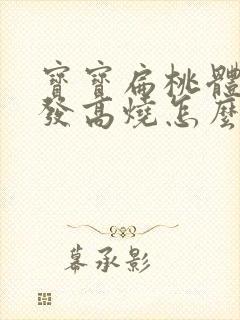 寶寶扁桃體
發高燒怎麼
幕承影